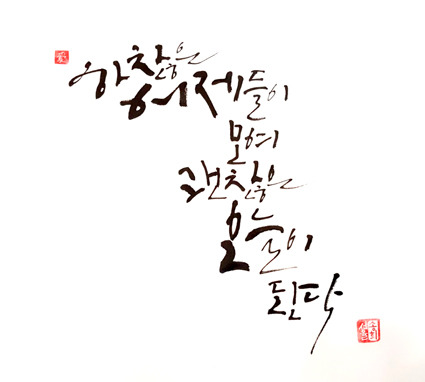 하찮은
어제들이
모여
괜찮은
오늘이
된다